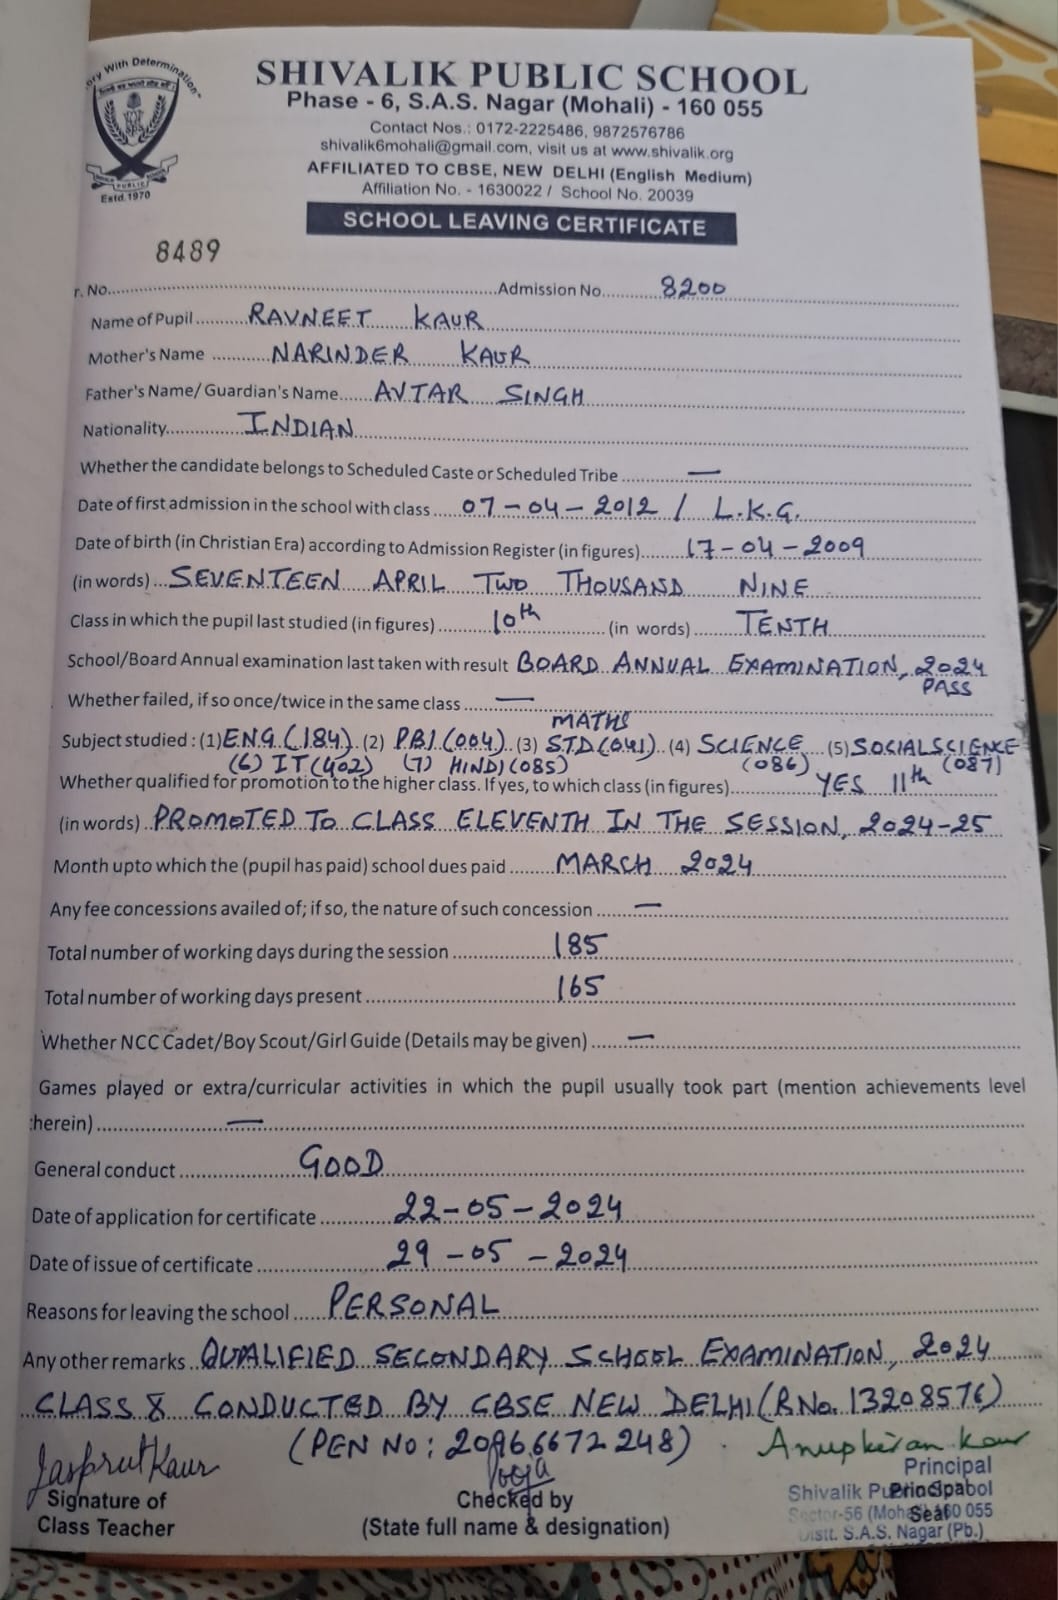 ory With Determination
Estd. 1970
SHIVALIK PUBLIC SCHOOL
Phase - 6, S.A.S. Nagar (Mohali) - 160 055
Contact Nos.: 0172-2225486, 9872576786
shivalik6mohali@gmail.com, visit us at www.shivalik.org
AFFILIATED TO CBSE, NEW DELHI (English Medium)
Affiliation No. - 1630022 / School No. 20039
SCHOOL LEAVING CERTIFICATE
8489
r. No. Admission No. 8200
Name of Pupil RAVNEET KAUR
Mother's Name NARINDER KAUR
Father's Name/ Guardian's Name AVTAR SINGH
Nationality INDIAN
Whether the candidate belongs to Scheduled Caste or Scheduled Tribe —
Date of first admission in the school with class 07-04-2012 / L.K.G.
Date of birth (in Christian Era) according to Admission Register (in figures) 17-04-2009
(in words) SEVENTEEN APRIL TWO THOUSAND NINE
Class in which the pupil last studied (in figures) 10th (in words) TENTH
School/Board Annual examination last taken with result BOARD ANNUAL EXAMINATION, 2024
PASS
Whether failed, if so once/twice in the same class —
MATHS
Subject studied : (1) ENG (184) (2) PBI (004) (3) STD (041) (4) SCIENCE (5) SOCIAL SCIENCE
(6) IT (402) (7) HINDI (085) (086) (087)
Whether qualified for promotion to the higher class. If yes, to which class (in figures) YES 11th
(in words) PROMOTED TO CLASS ELEVENTH IN THE SESSION, 2024-25
Month upto which the (pupil has paid) school dues paid MARCH 2024
Any fee concessions availed of; if so, the nature of such concession —
Total number of working days during the session 185
Total number of working days present 165
Whether NCC Cadet/Boy Scout/Girl Guide (Details may be given) —
Games played or extra/curricular activities in which the pupil usually took part (mention achievements level
herein) —
General conduct GOOD
Date of application for certificate 22-05-2024
Date of issue of certificate 29-05-2024
Reasons for leaving the school PERSONAL
Any other remarks QUALIFIED SECONDARY SCHOOL EXAMINATION, 2024
CLASS X CONDUCTED BY CBSE NEW DELHI (RNo. 13208576)
(PEN NO: 20966672248)
Jaspreet Kaur Pooja Anupkiran Kaur
Signature of
Class Teacher
Checked by
(State full name & designation)
Principal
Seal
Principal
Shivalik Public School
Sector-56 (Mohali) 160 055
Distt. S.A.S. Nagar (Pb.)